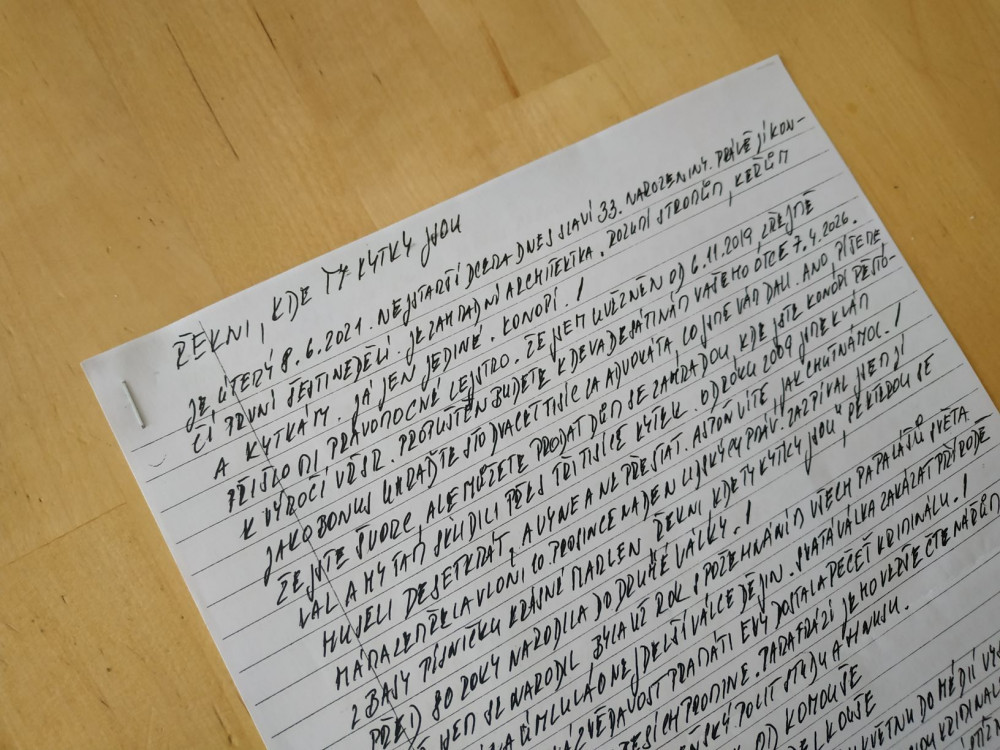 ŘEKNI, KDE TY KYTKY JSOU
JE ÚTERÝ 8.6.2021. NEJSTARŠÍ DCERA DNES SLAVÍ 33. NAROZENINY. PRÁVĚ JÍ KON-
ČÍ PRVNÍ ŠESTINEDĚLÍ. JE ZAHRADNÍ ARCHITEKTKA. ROZUMÍ STROMŮM, KEŘŮM
A KYTKÁM. JÁ JEN JEDINÉ. KONOPÍ!
PŘIŠLO MI PRAVOMOCNÉ LEJSTRO. ŽE JSEM UVĚZNĚN OD 6.11.2019, ZŘEJMĚ
K VÝROČÍ VŘSR. PROPUŠTĚN BUDETE K DEVADESÁTINÁM VAŠEHO OTCE 7.4.2026.
JAKO BONUS UHRAĎTE STO DVACET TISÍC ZA ADVOKÁTA, CO JSME VÁM DALI. ANO, PÍŠETE,
ŽE JSTE ŠVORC, ALE MŮŽETE PRODAT DŮM SE ZAHRADOU, KDE JSTE KONOPÍ PĚSTO-
VAL A MY TAM SKLIDILI PŘES TŘI TISÍCE KYTEK. OD ROKU 2009 JSME K VÁM
MUSELI DESETKRÁT, A VY NE A NE PŘESTAT. ASPOŇ VÍTE, JAK CHUTNÁ MOC!
MÁMA ZEMŘELA VLONI 10. PROSINCE NA DEN LIDSKÝCH PRÁV. ZAZPÍVAL JSEM JÍ
Z BASY PÍSNIČKU KRÁSNÉ MARLEN ŘEKNI, KDE TY KYTKY JSOU, PŘI KTEROU SE
PŘED 80 ROKY NARODILA DO DRUHÉ VÁLKY!
JEN SE NARODIL BYLA UŽ ROK S POŽEHNÁNÍM VŠECH PAPALÁŠŮ SVĚTA
ÚMLUVA O NEJDELŠÍ VÁLCE DĚJIN. SVATÁ VÁLKA ZAKÁZAT PŘÍRODĚ
ZVĚDAVOST PRAMÁTI EVY DOSTALA PEČEŤ KRIMINÁLU!
PROMINE. PARAFRÁZÍ JEHO VERŠE ČTE NÁČŮM
POLIT STUDU A HNUSU.
OD KOMOUŠE
KVĚTNU DO MÉDIÍ